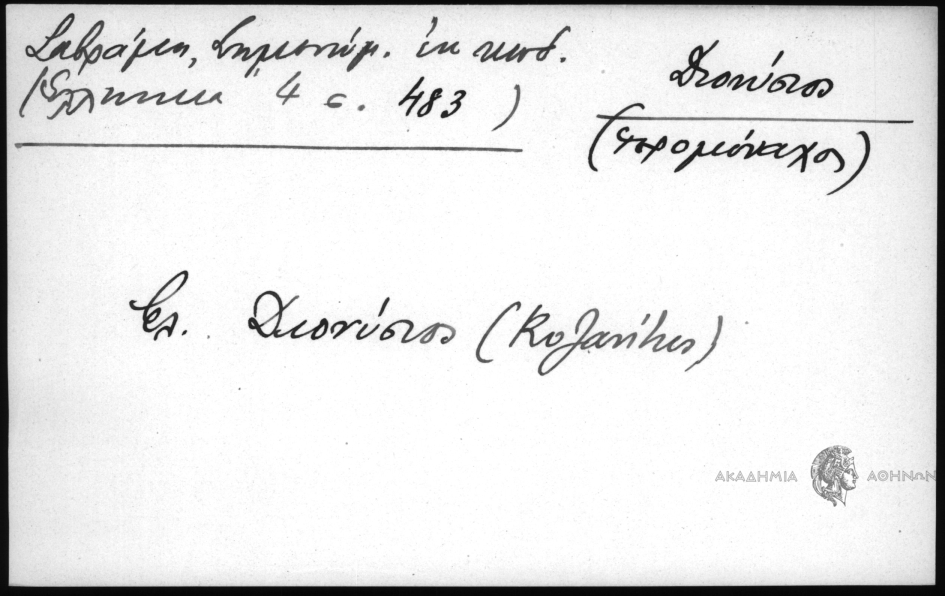 Σαβράμη, Σημειώμ. ἐκ κωδ.
(Ἑλληνικά 4 σ. 483)
Διονύσιος
(ἱερομόναχος)
Βλ. Διονύσιος (Κοζανίτης)
ΑΚΑΔΗΜΙΑ ΑΘΗΝΩΝ